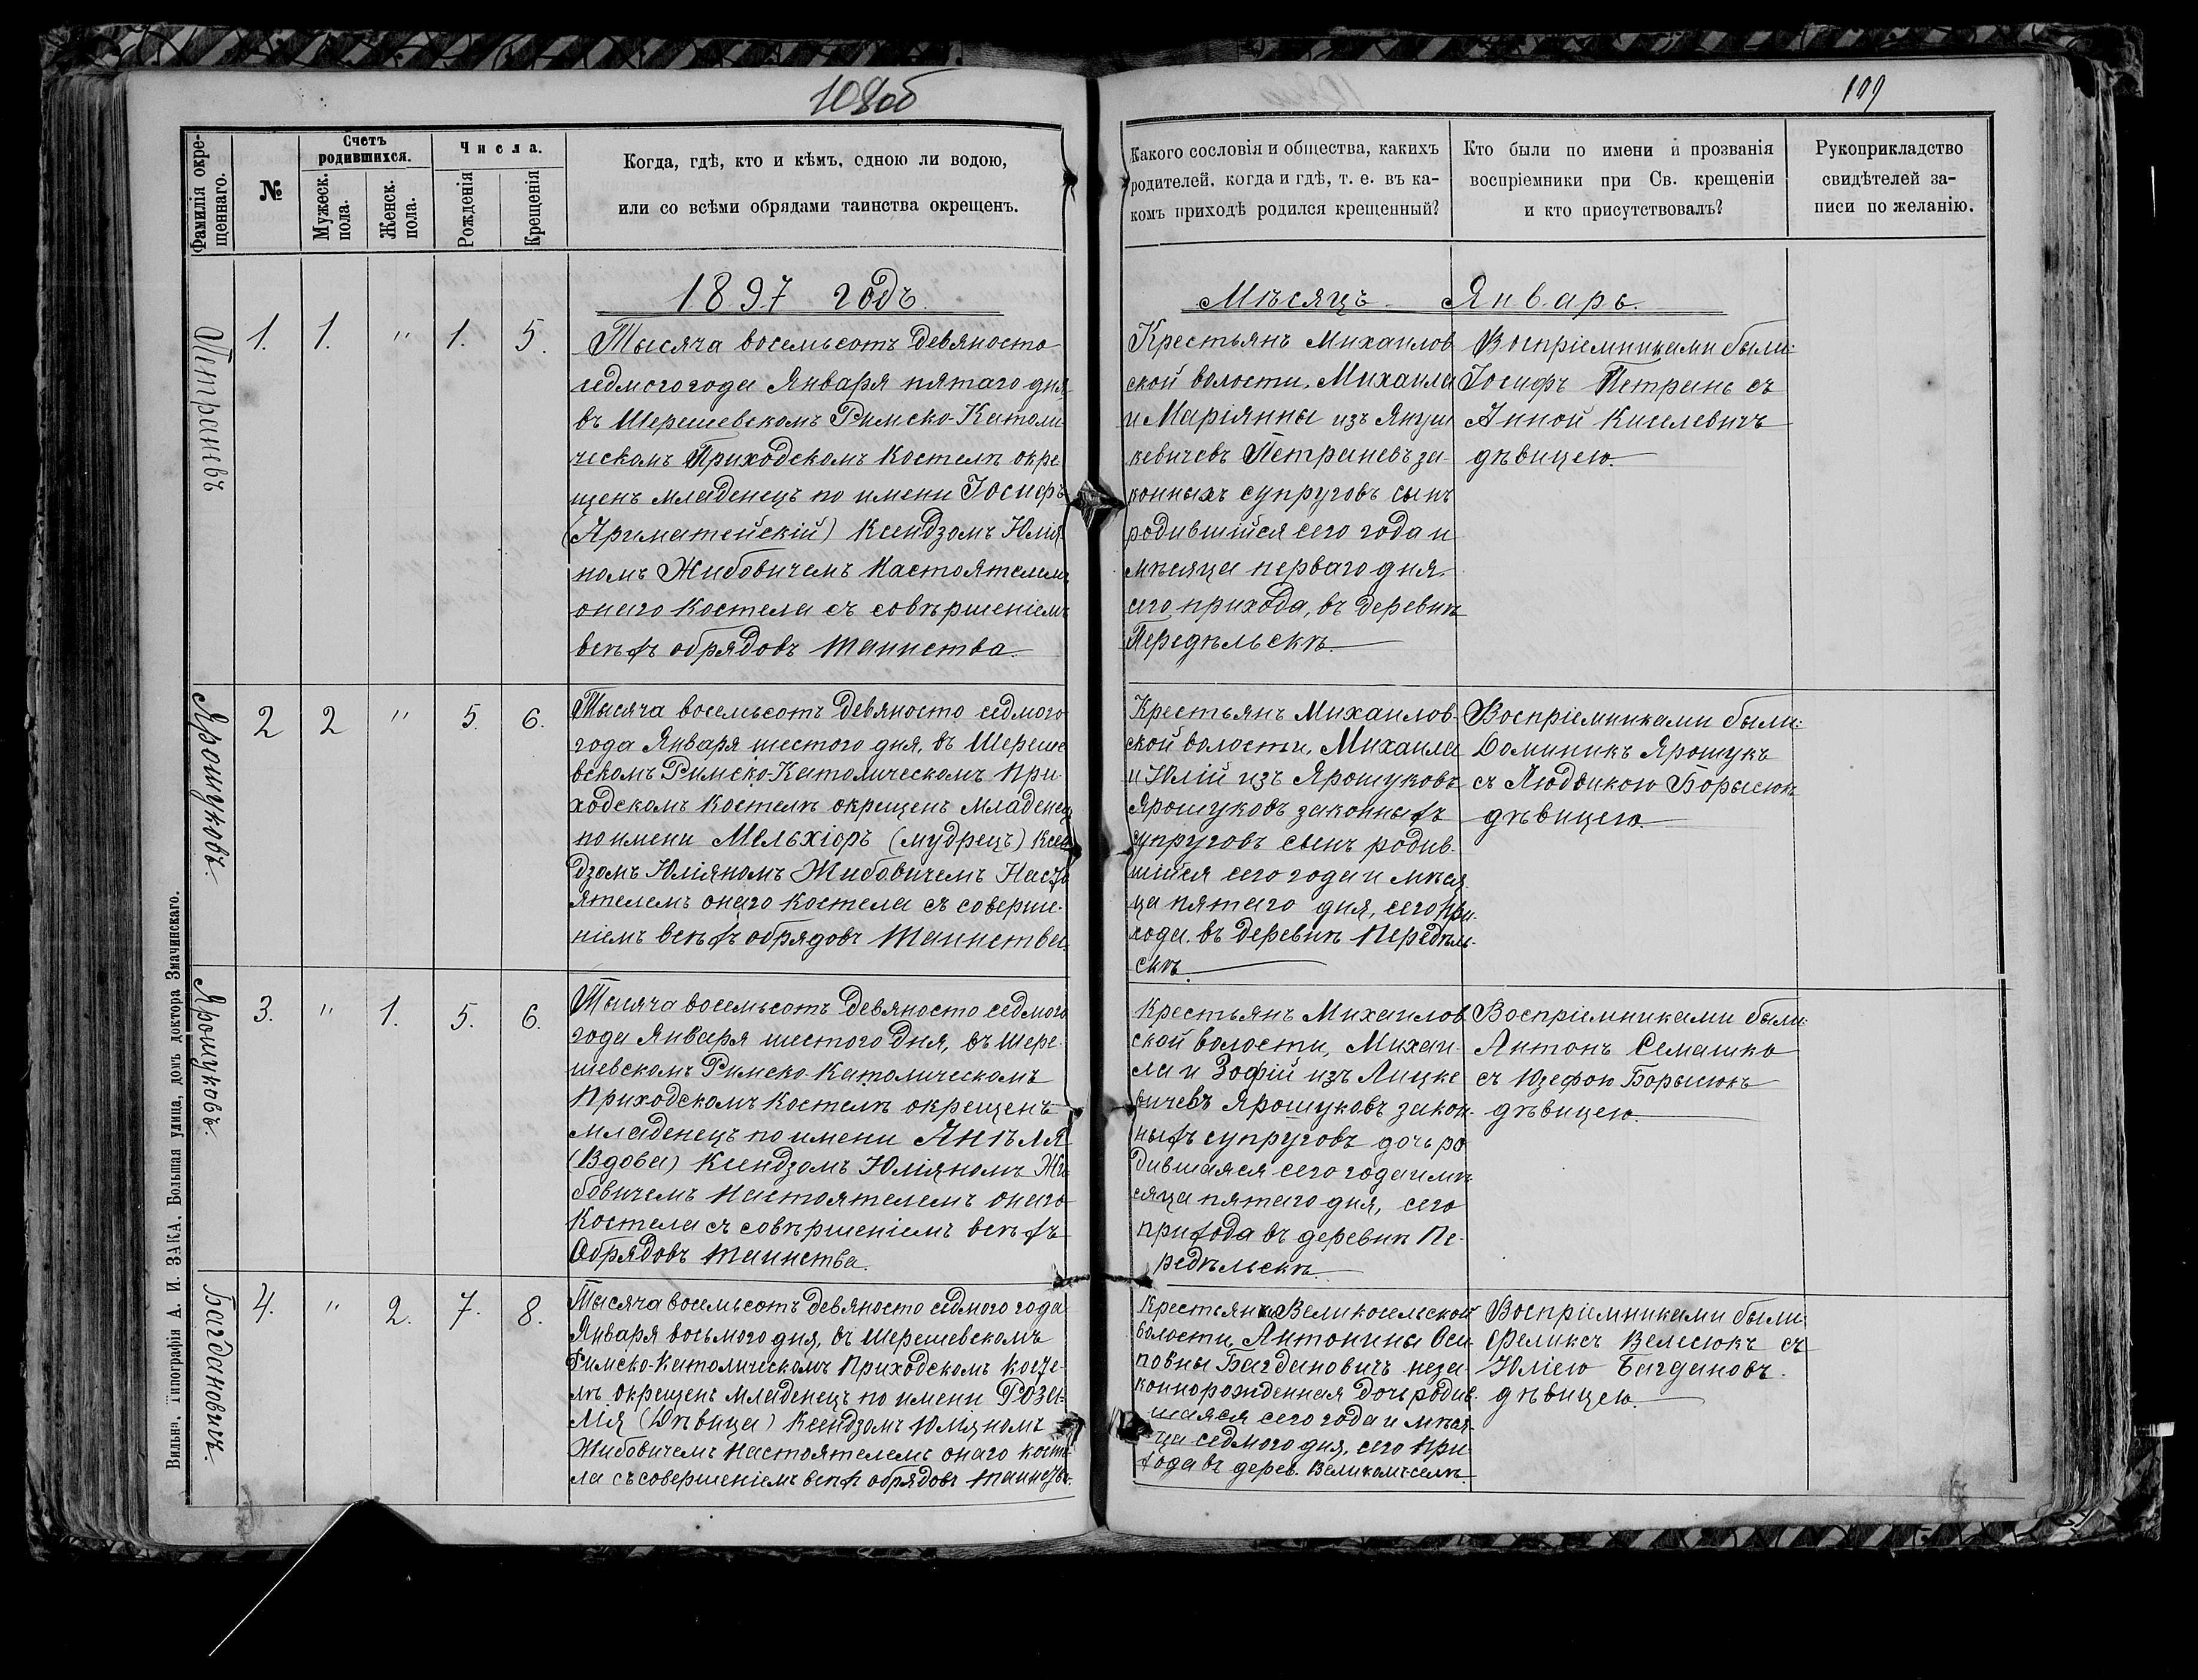 108об
109
Фамилія окре-
щеннаго.
№
Счетъ
родившихся.
Мужеск.
пола.
Женск.
пола.
Числа.
Рожденія
Крещенія
Когда, гдѣ, кто и кѣмъ, одною ли водою,
или со всѣми обрядами таинства окрещенъ.
Какого сословія и общества, какихъ
родителей, когда и гдѣ, т. е. въ ка-
комъ приходѣ родился крещенный?
Кто были по имени и прозванія
воспріемники при Св. крещеніи
и кто присутствовалъ?
Рукоприкладство
свидѣтелей за-
писи по желанію.
1897 годъ.
Мѣсяцъ Январь.
Петраневъ
1. 1. " 1. 5.
Тысяча восемьсотъ девяносто
седмого года Января пятаго дня
въ Шерешевскомъ Римско-Католи
ческомъ Приходскомъ Костелѣ окре
щенъ младенецъ по имени Іосифъ
(Ариматейскій) Ксендзомъ Юлія
номъ Жибовичемъ Настоятелемъ
онаго Костела съ совѣршеніемъ
всѣхъ обрядовъ таинства.
Крестьянъ Михаилов
ской волости, Михаила
и Маріянны изъ Януш
кевичевъ Петраневъ за-
конныхъ супруговъ сынъ
родившійся сего года и
мѣсяца перваго дня,
сего прихода, въ деревнѣ
Передѣльскѣ.
Воспріемниками были:
Іосифъ Петрань съ
Анной Киселевичъ
дѣвицею.
Ярошуковъ.
2 2 " 5. 6.
Тысяча восемьсотъ девяносто седмого
года Января шестого дня, въ Шереше
вскомъ Римско-Католическомъ При-
ходскомъ Костелѣ окрещенъ младенец
по имени Мельхіоръ (мудрецъ) Ксен
дзомъ Юліяномъ Жибовичемъ Насто
ятелемъ онаго Костела съ соверше-
ніемъ всѣхъ обрядовъ таинства.
Крестьянъ Михаилов-
ской волости, Михаила
и Юлій изъ Ярошуковъ
Ярошуковъ законныхъ
супруговъ сынъ родив-
шійся сего года и мѣся
ца пятаго дня, сего при-
хода, въ деревнѣ Передѣль-
скѣ.
Воспріемниками были:
Доминикъ Ярошукъ
съ Людвикою Борысюкъ
дѣвицею.
Ярошуковъ.
3. " 1. 5. 6.
Тысяча восемьсотъ девяносто седмого
года Января шестого дня, въ Шере-
шевскомъ Римско-Католическомъ
Приходскомъ Костелѣ окрещенъ
младенецъ по имени Анѣля
(Вдова) Ксендзомъ Юліяномъ Жи
бовичемъ Настоятелемъ онаго
Костела съ совѣршеніемъ всѣхъ
Обрядовъ таинства.
Крестьянъ Михаилов
ской волости, Михаи-
ла и Зофій изъ Лицке
вичевъ Ярошуковъ закон-
ныхъ супруговъ дочь ро
дившаяся сего года и мѣ
сяца пятаго дня, сего
прихода въ деревнѣ Пе-
редѣльскѣ.
Воспріемниками были:
Антонъ Семашко
съ Юзефою Борысюкъ
дѣвицею.
Багдановичъ.
4. " 2. 7. 8.
Тысяча восемьсотъ девяносто седмого года
Января восьмого дня, въ Шерешевскомъ
Римско-Католическомъ Приходскомъ Косте-
лѣ окрещенъ младенецъ по имени Роза-
лія (Дѣвица) Ксендзомъ Юліяномъ
Жибовичемъ Настоятелемъ онаго Косте-
ла съ совершеніемъ всѣхъ обрядовъ таинства.
Крестьянки Великосельской
волости, Антонины Оси
повны Багдановичъ неза-
коннорожденная дочь родив-
шаяся сего года и мѣся-
ца седмого дня, сего при
хода въ дерев. Великомъселѣ.
Воспріемниками были:
Феликсъ Велесюкъ съ
Юліею Багдановъ.
дѣвицею.
Вильна, Типографія А. И. ЗАКА. Большая улица, домъ доктора Змачинскаго.